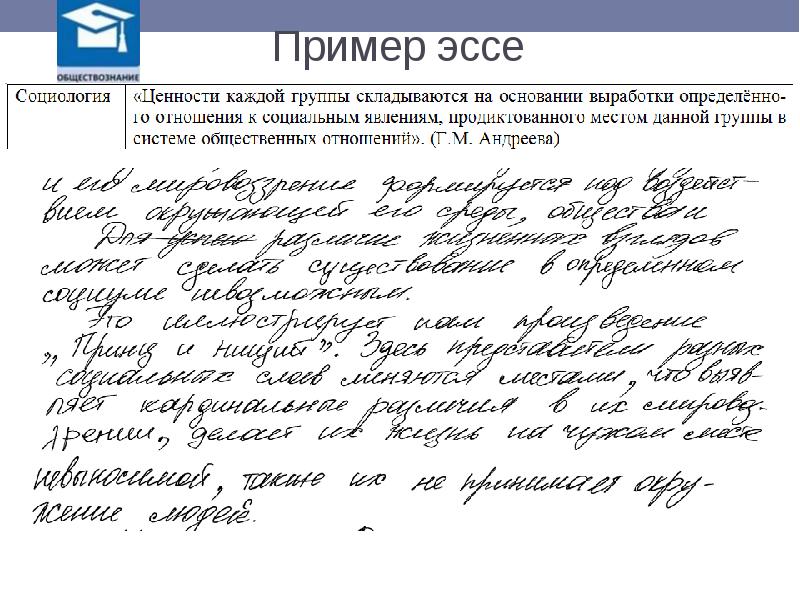 Пример эссе
ОБЩЕСТВОЗНАНИЕ
Социология
«Ценности каждой группы складываются на основании выработки определённо-
го отношения к социальным явлениям, продиктованного местом данной группы в
системе общественных отношений». (Г.М. Андреева)
и его мировоззрение формируется под воздейст-
вием окружающей его среды, общества и
Для различие жизненных взглядов
может сделать существование в определённом
социуме невозможным.
Это иллюстрирует нам произведение
„Принц и нищий”. Здесь представители разных
социальных слоев меняются местами, что выяв-
ляет кардинальные различия в их мировоз-
зрении, делает их жизнь на чужом месте
невыносимой, также их не принимает окру-
жение людей.